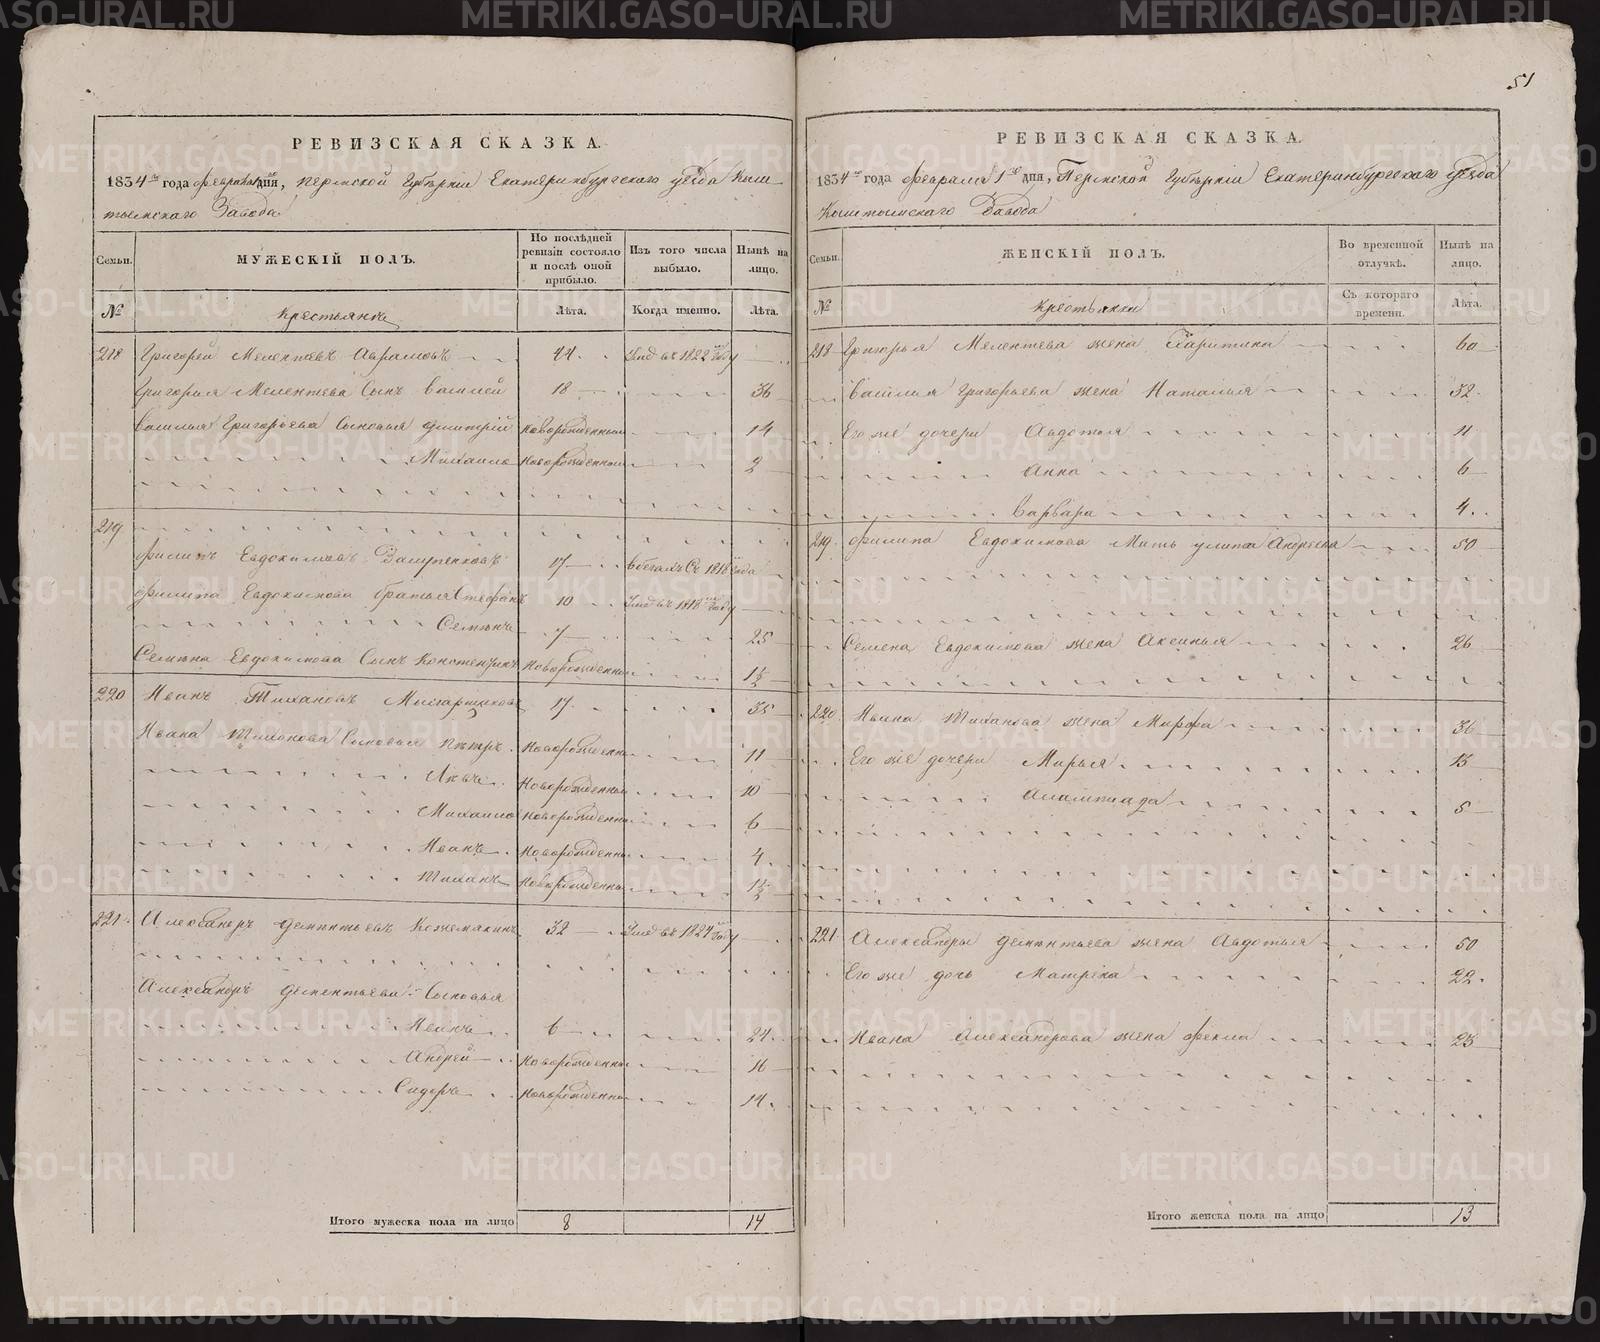 51
РЕВИЗСКАЯ СКАЗКА.
1834го года февраля 1го дня, Пермской Губернии Екатеринбургского уезда Кыш-
тымскаго Завода
Семьи.
МУЖЕСКІЙ ПОЛЪ.
По послѣдней ревизіи состояло и послѣ оной прибыло.
Изъ того числа выбыло.
Нынѣ на лицо.
№
Крестьяне
Лѣта.
Когда именно.
Лѣта.
218 Григорей Мелентьевъ Аврамовъ 44 Умд въ 1822м году
Григорья Мелентьева Сынъ Василей 18 36
Василья Григорьева Сыновья Дмитрій Новорожденный 14
Михаило Новорожденной 2
219
Филипъ Евдокимовъ 17 Вбегахъ Съ 1818 года
Филипа Евдокимова братья Стефанъ 10 Умд въ 1818м году
Семенъ 7 25
Семена Евдокимова Сынъ Констенцинъ Новорожденны 1½
220 Иванъ Тихановъ 17 35
Ивана Тиханова Сыновья Петръ Новорожденны 11
Новорожденны 10
Михаило Новорожденны 6
Иванъ Новорожденны 4
Тиханъ Новорожденны 1½
221 Александръ Дементьевъ Кожемякинъ 32 Умд въ 1824м году
Александръ Дементьева Сыновья
Иванъ 6 24
Андрей Новорожденны 16
Сидоръ Новорожденны 14
Итого мужеска пола на лицо 8 14
РЕВИЗСКАЯ СКАЗКА.
1834го года февраля 1го дня, Пермской Губерніи Екатеринбургскаго уезда
Кыштымскаго Завода
Семьи.
ЖЕНСКІЙ ПОЛЪ.
Во временной отлучкѣ.
Нынѣ на лицо.
№
Крестьянки
Съ котораго времени.
Лѣта.
218 Григорья Мелентева жена Харитина 60
Василья Григорьева жена Наталья 32
Его же дочери Авдотья 11
Анна 6
Варвара 4
219 Филипа Евдокимова Мать улита Андреева 50
Семена Евдокимова жена Аксинья 26
220 Ивана Тиханова жена Марфа 36
Его же дочери Марья 13
Аалмпиада 5
221 Александры Дементьева жена Авдотья 50
Его же дочь Матрена 22
Ивана Александрова жена Фекла 25
Итого женска пола на лицо 13
METRIKI.GASO-URAL.RU